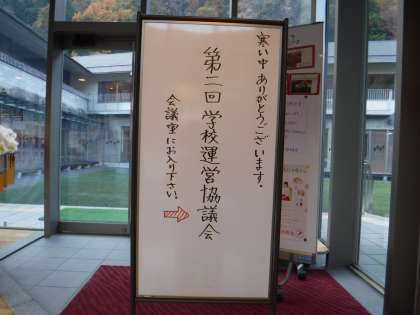 寒い中 ありがとうございます。
第二回 学校運営協議会
会議室にお入り下さい。